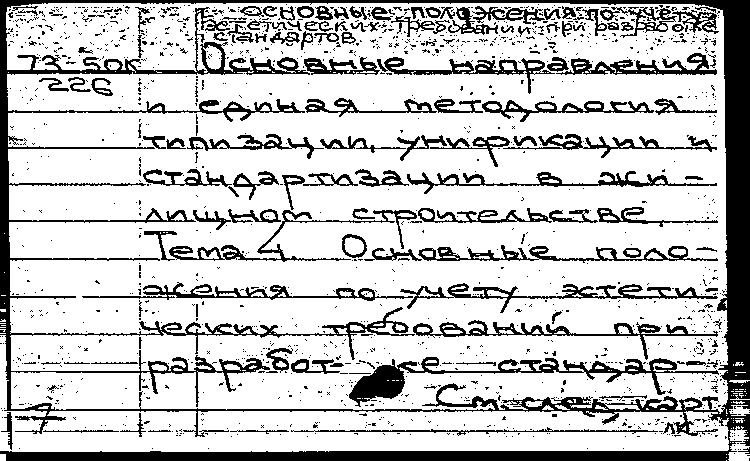 Основные положения по учету
эстетических требований при разработке
стандартов
73-50к Основные направления
226
и единая методология
типизации, унификации и
стандартизации в жи-
лищном строительстве.
Тема 4. Основные поло-
жения по учету эстети-
ческих требований при
разработ- ке стандар-
См. след. карт